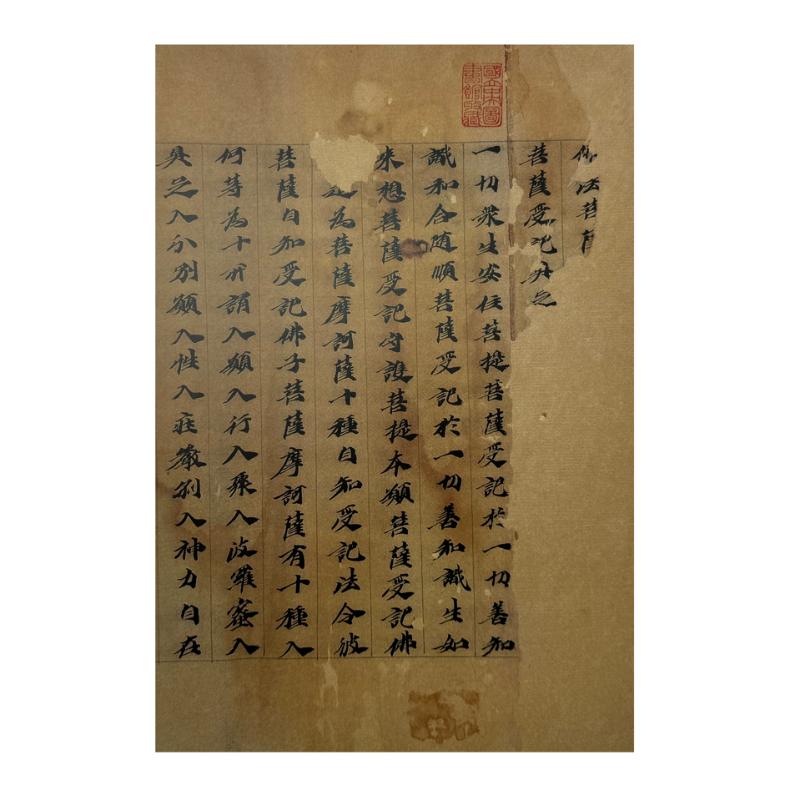 國立中央圖
書館收藏
佛法菩
菩薩受記具足
一切衆生安住菩提菩薩受記於一切善知
識和合随順菩薩受記於一切善知識生如
来想菩薩受記守護菩提本願菩薩受記佛
是為菩薩摩訶薩十種自知受記法令彼
菩薩自知受記佛子菩薩摩訶薩有十種入
何等為十所謂入願入行入聚入波羅蜜入
具足入分別願入性入莊嚴刹入神力自在